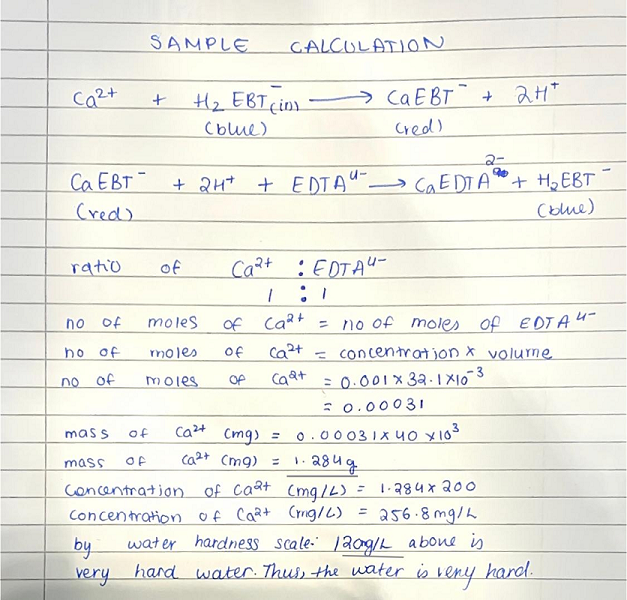 SAMPLE CALCULATION
Ca²⁺ + H₂EBT⁻(in) → CaEBT⁻ + 2H⁺
(blue) (red)
CaEBT⁻ + 2H⁺ + EDTA⁴⁻ → CaEDTA²⁻ + H₂EBT⁻
(red) (blue)
ratio of Ca²⁺ : EDTA⁴⁻
1 : 1
no of moles of Ca²⁺ = no of moles of EDTA⁴⁻
no of moles of Ca²⁺ = concentration x volume
no of moles of Ca²⁺ = 0.001 x 32.1 x 10⁻³
= 0.00031
mass of Ca²⁺ (mg) = 0.00031 x 40 x 10³
mass of Ca²⁺ (mg) = 1.284g
Concentration of Ca²⁺ (mg/L) = 1.284 x 200
Concentration of Ca²⁺ (mg/L) = 256.8mg/L
by water hardness scale. 120mg/L above is
very hard water. Thus, the water is very hard.